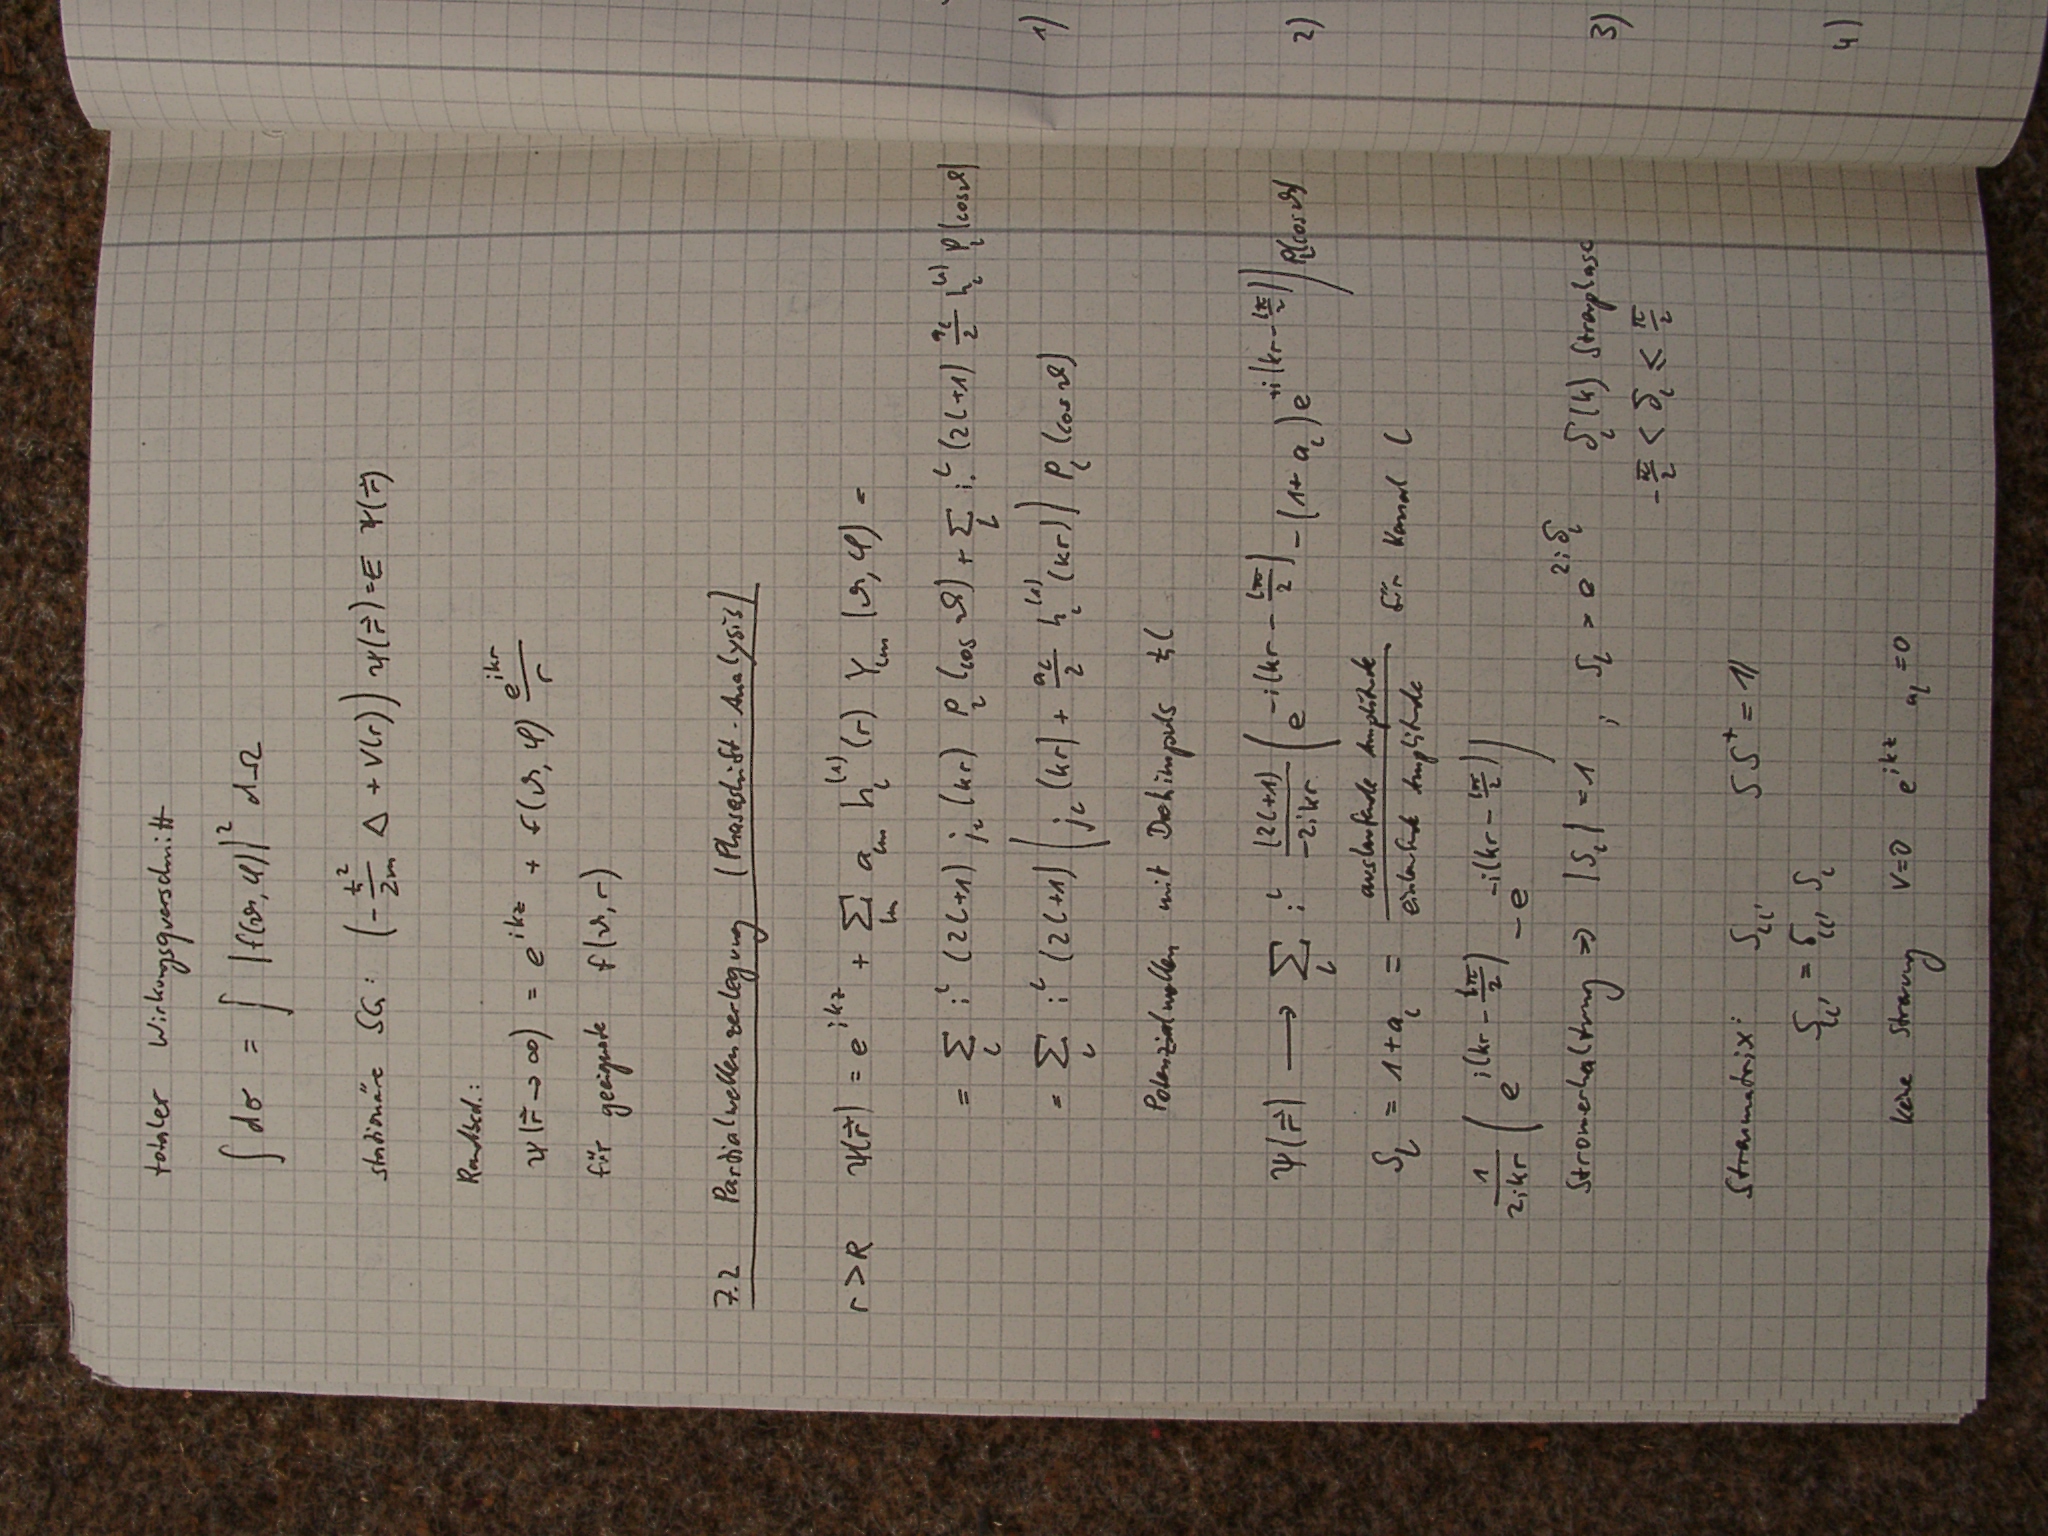 totaler Wirkungsquerschnitt
∫ dσ = ∫ |f(ϑ,φ)|² dΩ
stationäre SG: (-ħ²/2m Δ + V(r)) ψ(r⃗) = E ψ(r⃗)
Randbed.:
ψ(r⃗→∞) = e^{ikz} + f(ϑ,φ) e^{ikr}/r
für geeignete f(ϑ,r)
7.2 Partialwellenzerlegung (Phaseshift-Analysis)
r>R ψ(r⃗) = e^{ikz} + Σ_{lm} a_{lm} h_l^{(1)}(r) Y_{lm}(ϑ,φ) =
= Σ_l i^l (2l+1) j_l(kr) P_l(cos ϑ) + Σ_l i^l (2l+1) a_l/2 h_l^{(1)} P_l(cosϑ)
= Σ_l i^l (2l+1) (j_l(kr) + a_l/2 h_l^{(1)}(kr)) P_l(cosϑ)
mit Drehimpuls ħl
ψ(r⃗) ⟶ Σ_l i^l (2l+1)/(-2ikr) (e^{-i(kr-lπ/2)} - (1+a_l) e^{+i(kr-lπ/2)}) P_l(cosϑ)
S_l = 1+a_l = auslaufende Amplitude / einlaufende Amplitude für Kanal l
1/2ikr (e^{i(kr-lπ/2)} - e^{-i(kr-lπ/2)})
Stromerhaltung => |S_l| = 1 ; S_l = e^{2iδ_l} δ_l(k) Streuphase
-π/2 < δ_l ≤ π/2
Streumatrix: S_{ll'} SS⁺ = 1
S_{ll'} = δ_{ll'} S_l
keine Streuung V=0 e^{ikz} a_l=0
1)
2)
3)
4)